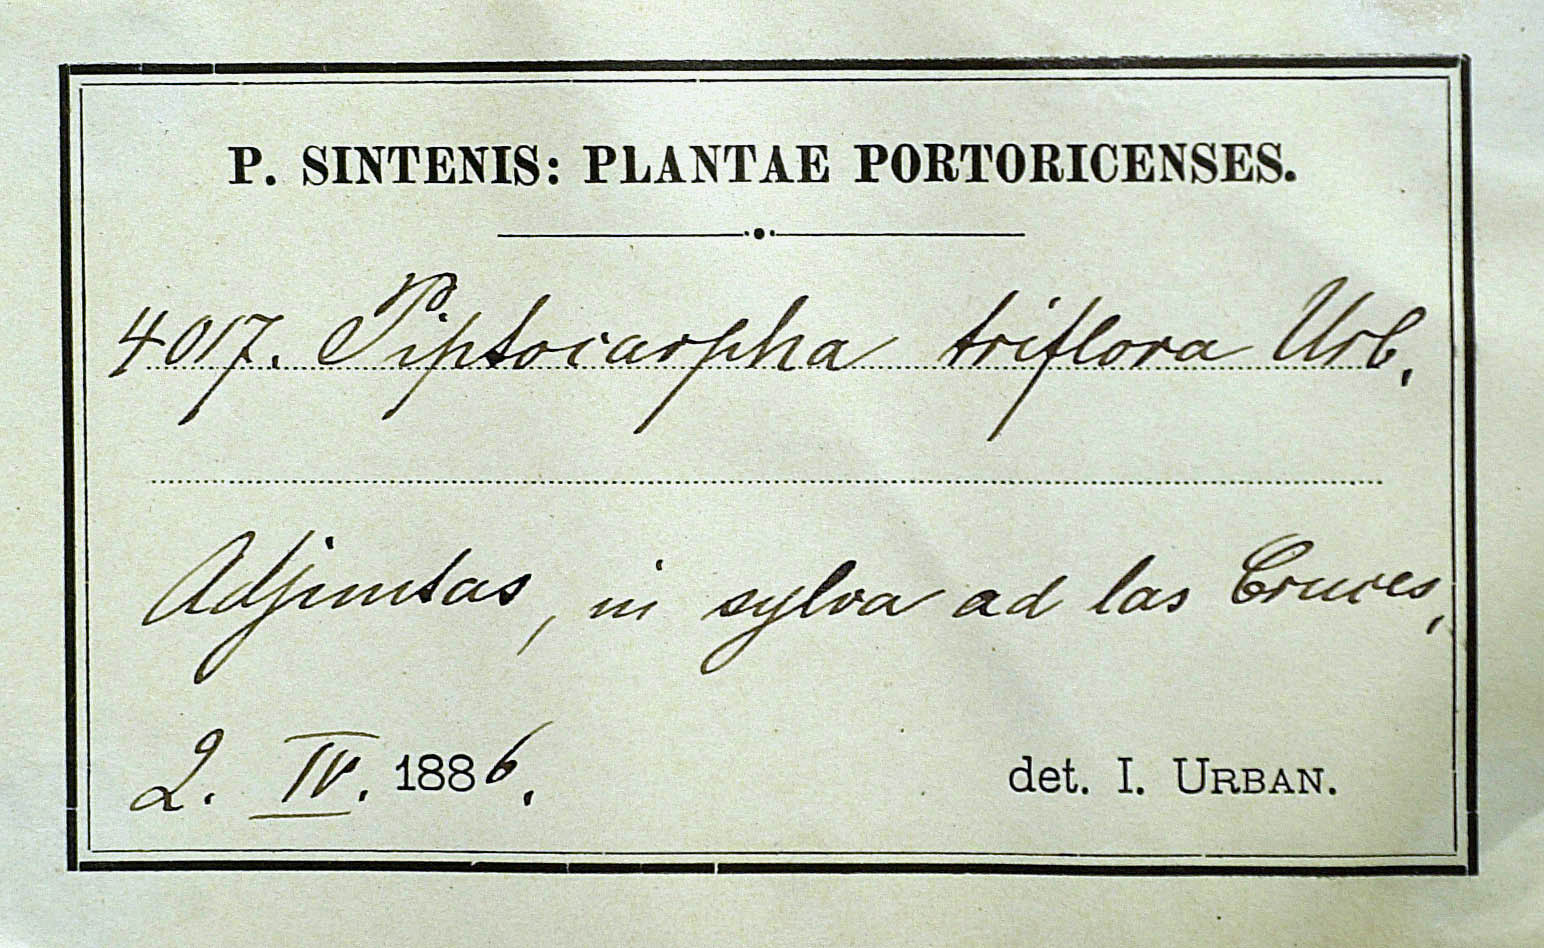 P. SINTENIS: PLANTAE PORTORICENSES.
4017. Piptocarpha triflora Urb.
Adjuntas, in sylva ad las Cruces,
2. IV. 1886.
det. I. URBAN.